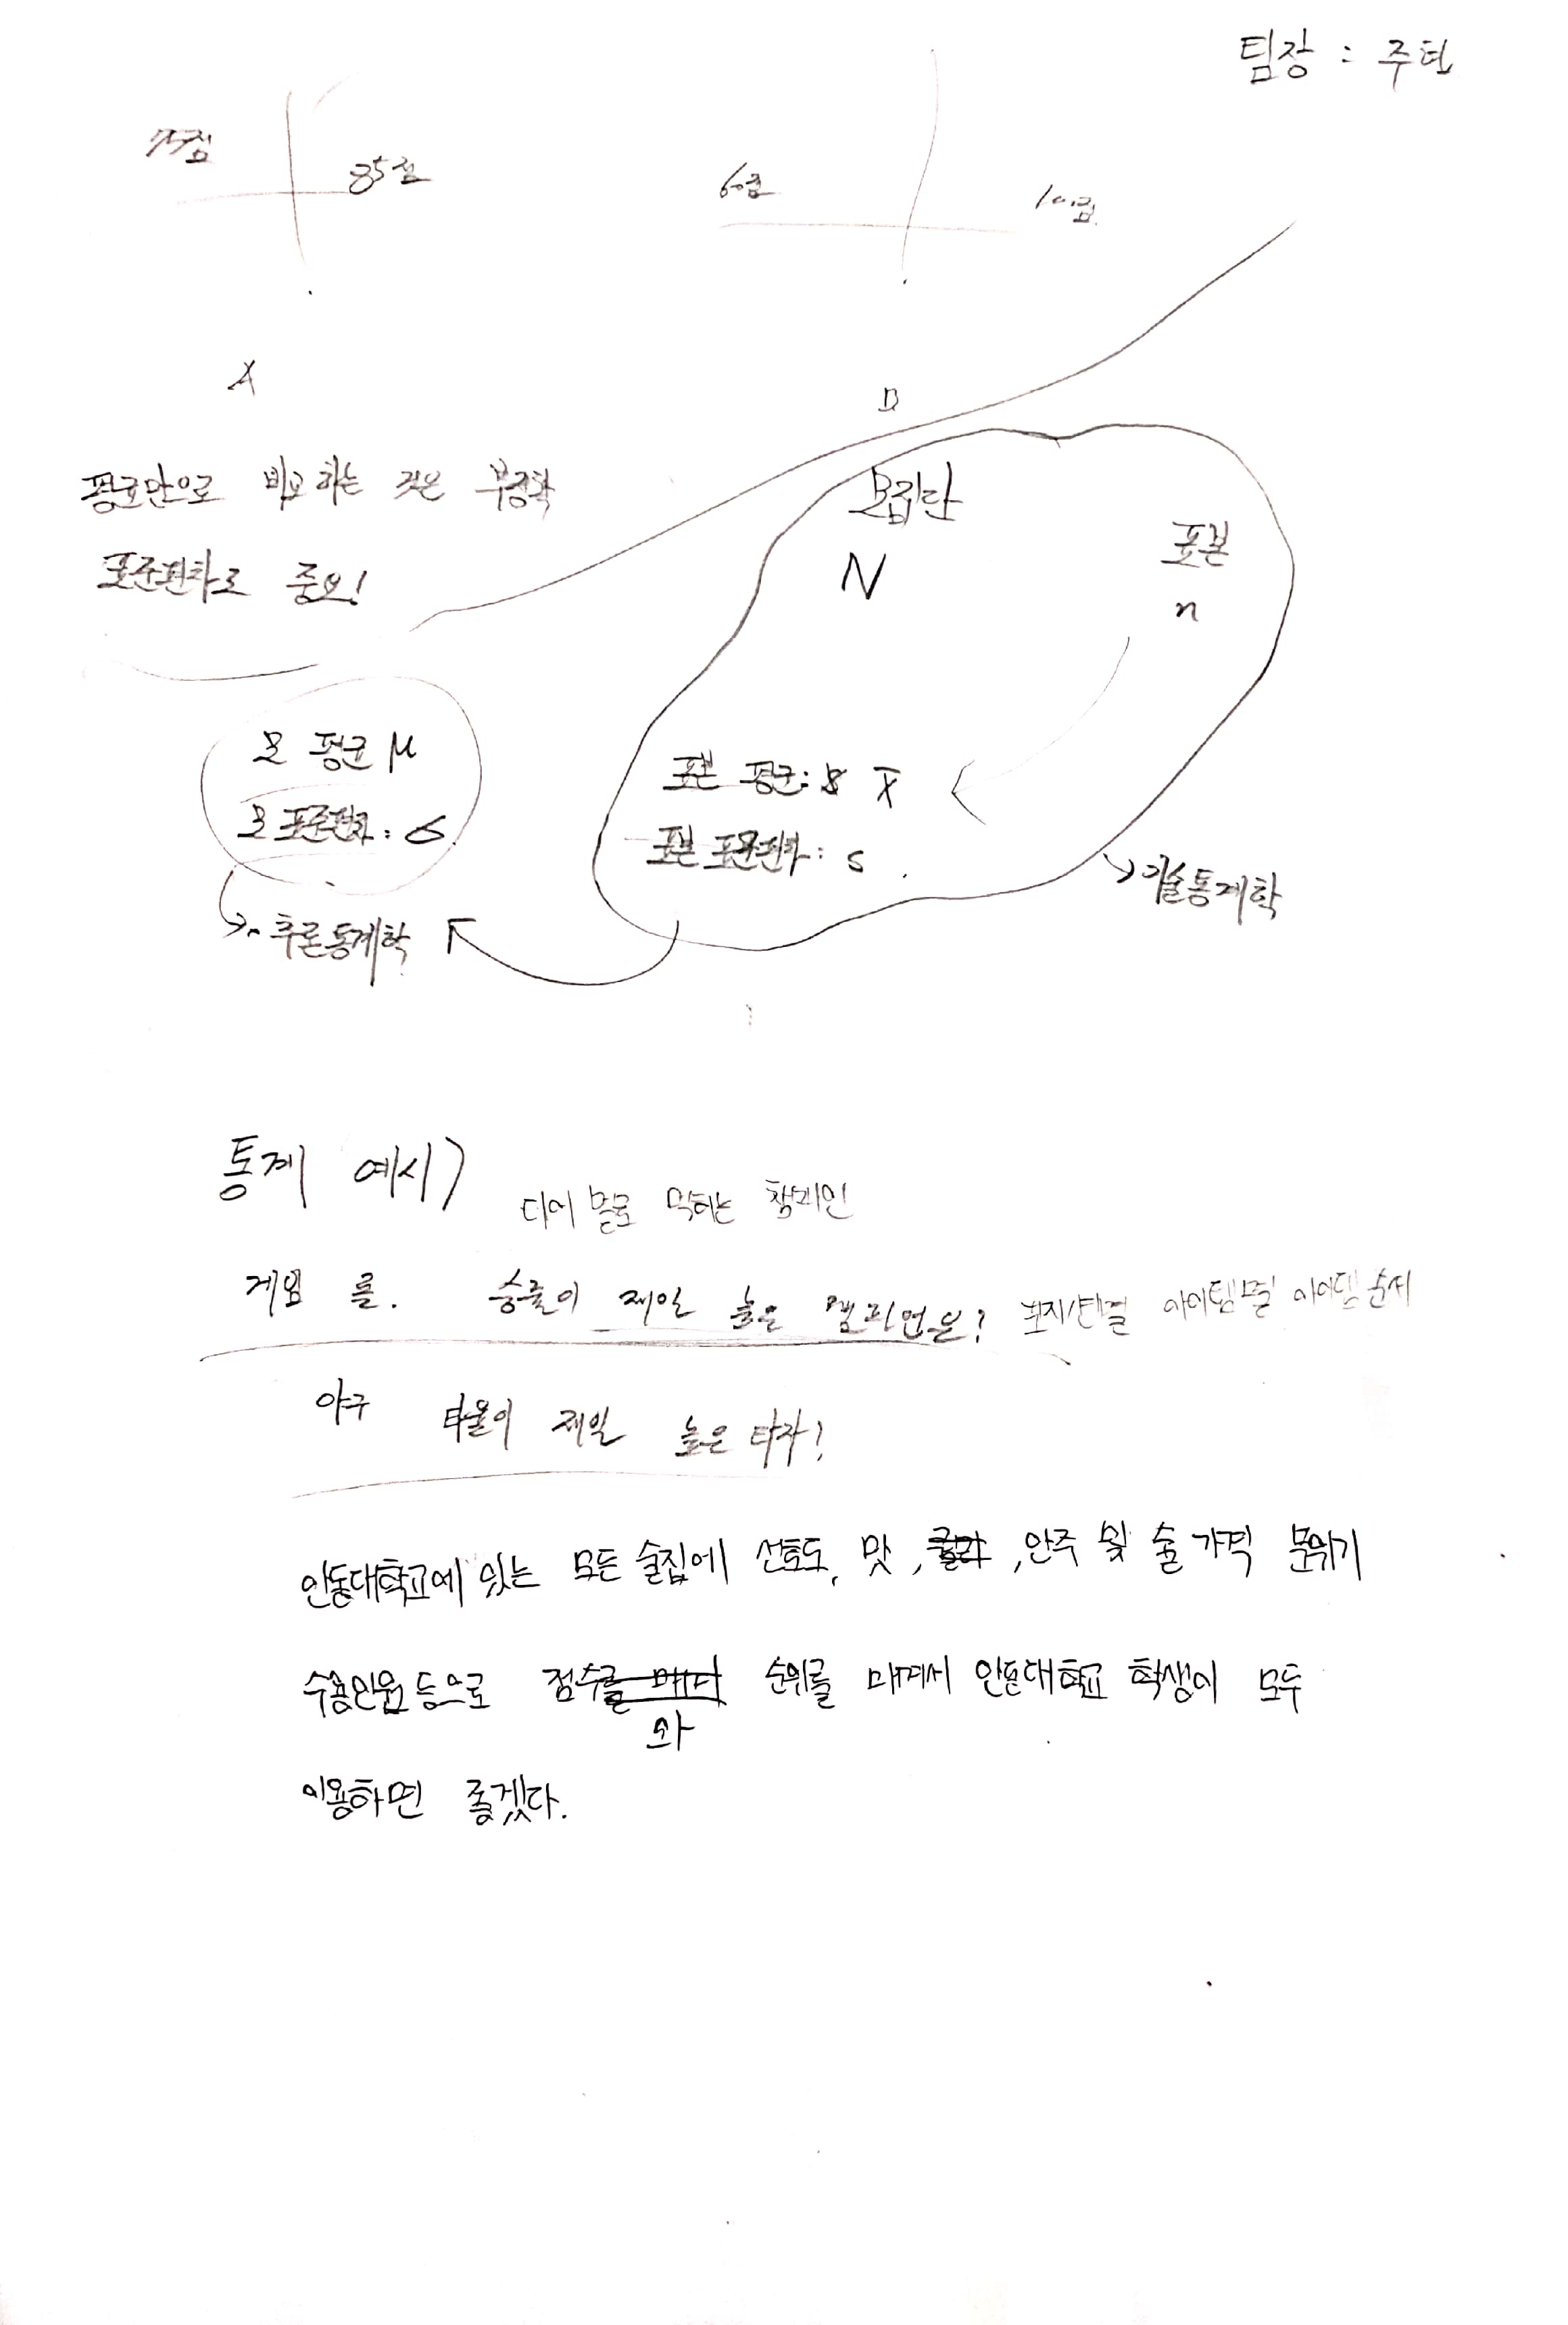 팀장 : 주현
75점 85점 60점 100점
A B
평균만으로 비교하는 것은 부정확
표준편차로 중요!
모집단 표본
N n
모 평균 μ
모 표준편차 : σ
표본 평균 : x̄
표본 표준편차 : s
기술통계학
추론통계학
통계 예시)
티어 별로 먹히는 챔피언
게임 롤. 승률이 제일 높은 챔피언은? 포지션별 아이템별 아이템순서
야구 타율이 제일 높은 타자?
안동대학교에 있는 모든 술집에 선호도, 맛, , 안주 및 술 가격 분위기
수용인원 등으로 점수와 순위를 매겨서 안동대학교 학생이 모두
이용하면 좋겠다.